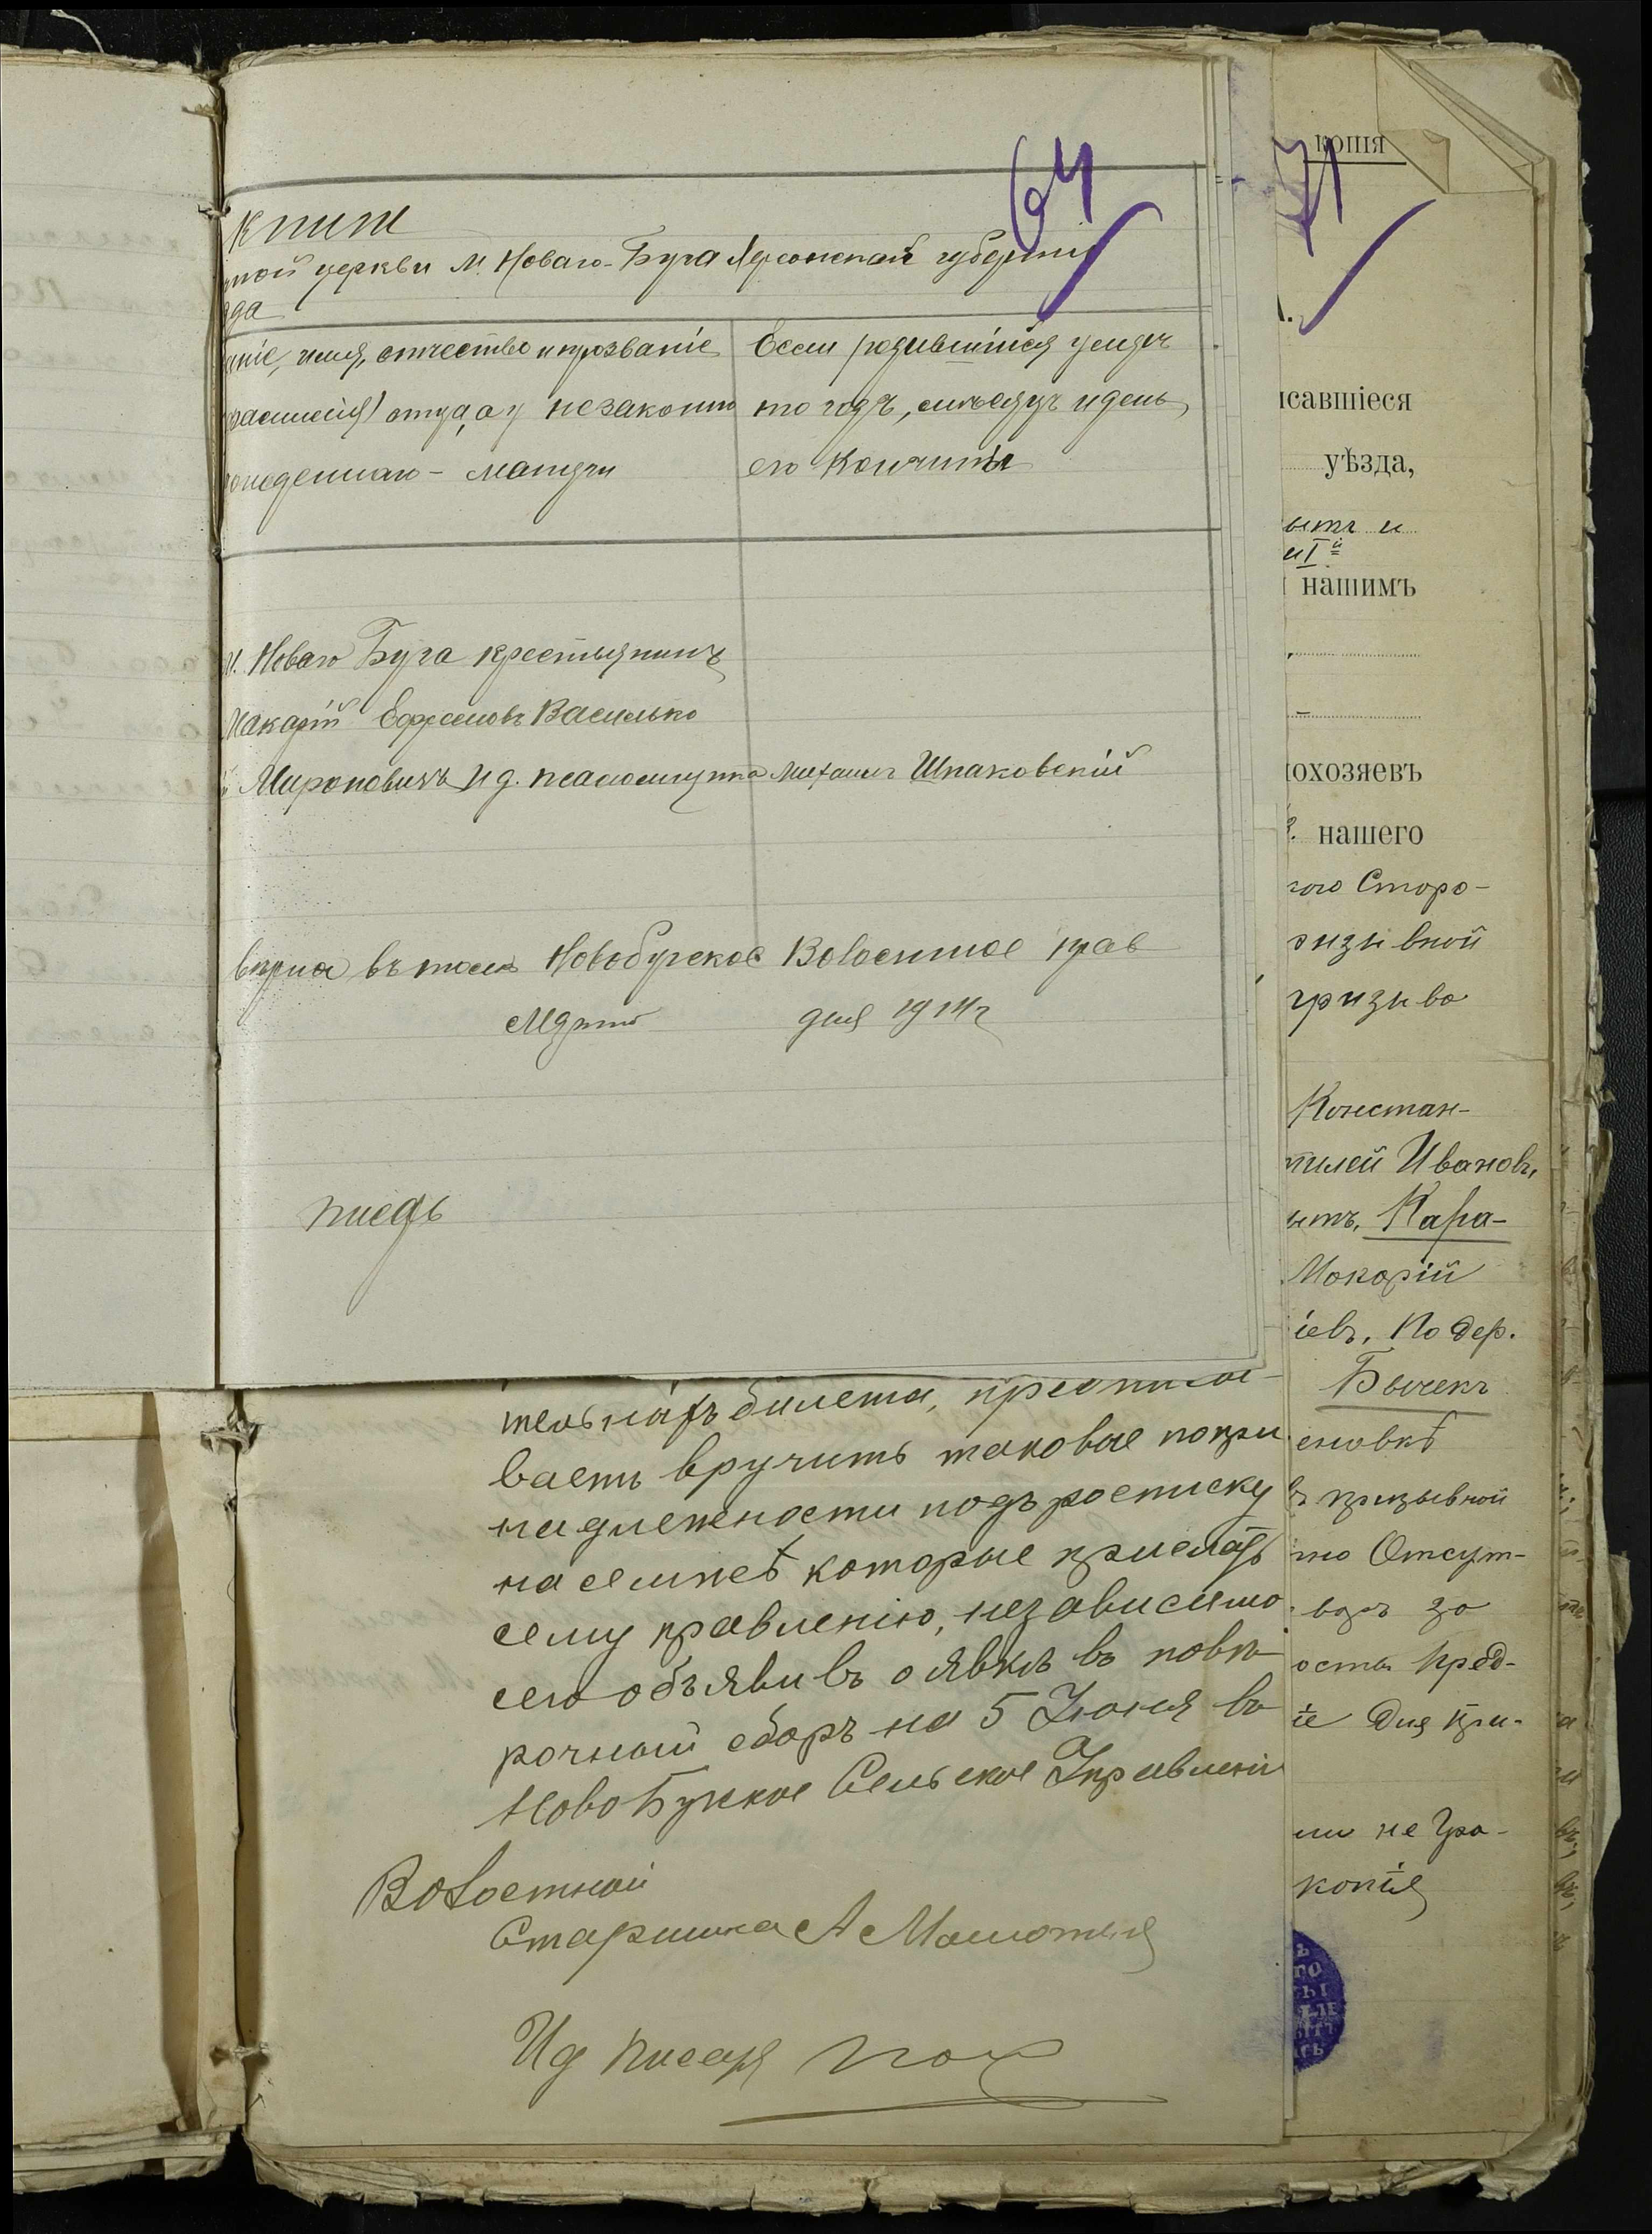 64
книги
ной церкви м. Новаго-Буга Херсонской губерніи
да
аніе, имя, отчество и прозваніе
отца, а у незаконно
рожденнаго - матери
Если родившійся умеръ
то годъ, мѣсяцъ и день
его кончины
м. Новаго Буга крестьянинъ
Макарій Ефремовъ Василько
Мироновичъ И д. псаломщика Михаилъ Шпаковскій
вѣрна въ томъ Новобугское Волостное прав
Марта дня 1914 г
писарь
тельныхъ билета, предписы-
ваетъ вручить таковые по при
надлежности подъ росписку
на семъ которые прислать
сему правленію, независимо
сего объявивъ о явкѣ въ повѣ-
рочный сборъ на 5 Іюня въ
НовоБугское Сельское Управлені
Волостной
Старшина А
И д писаря
копія
71
исавшіеся
уѣзда,
ытъ и
и 1й
нашимъ
охозяевъ
нашего
Сторо-
ризывной
призыва
Констан-
Ивановъ,
Кара-
Макарій
іевъ, по дер.
Бычекъ
еновкѣ
призывной
Отсут-
за
ость пред-
іе дня при-
не гра-
копія